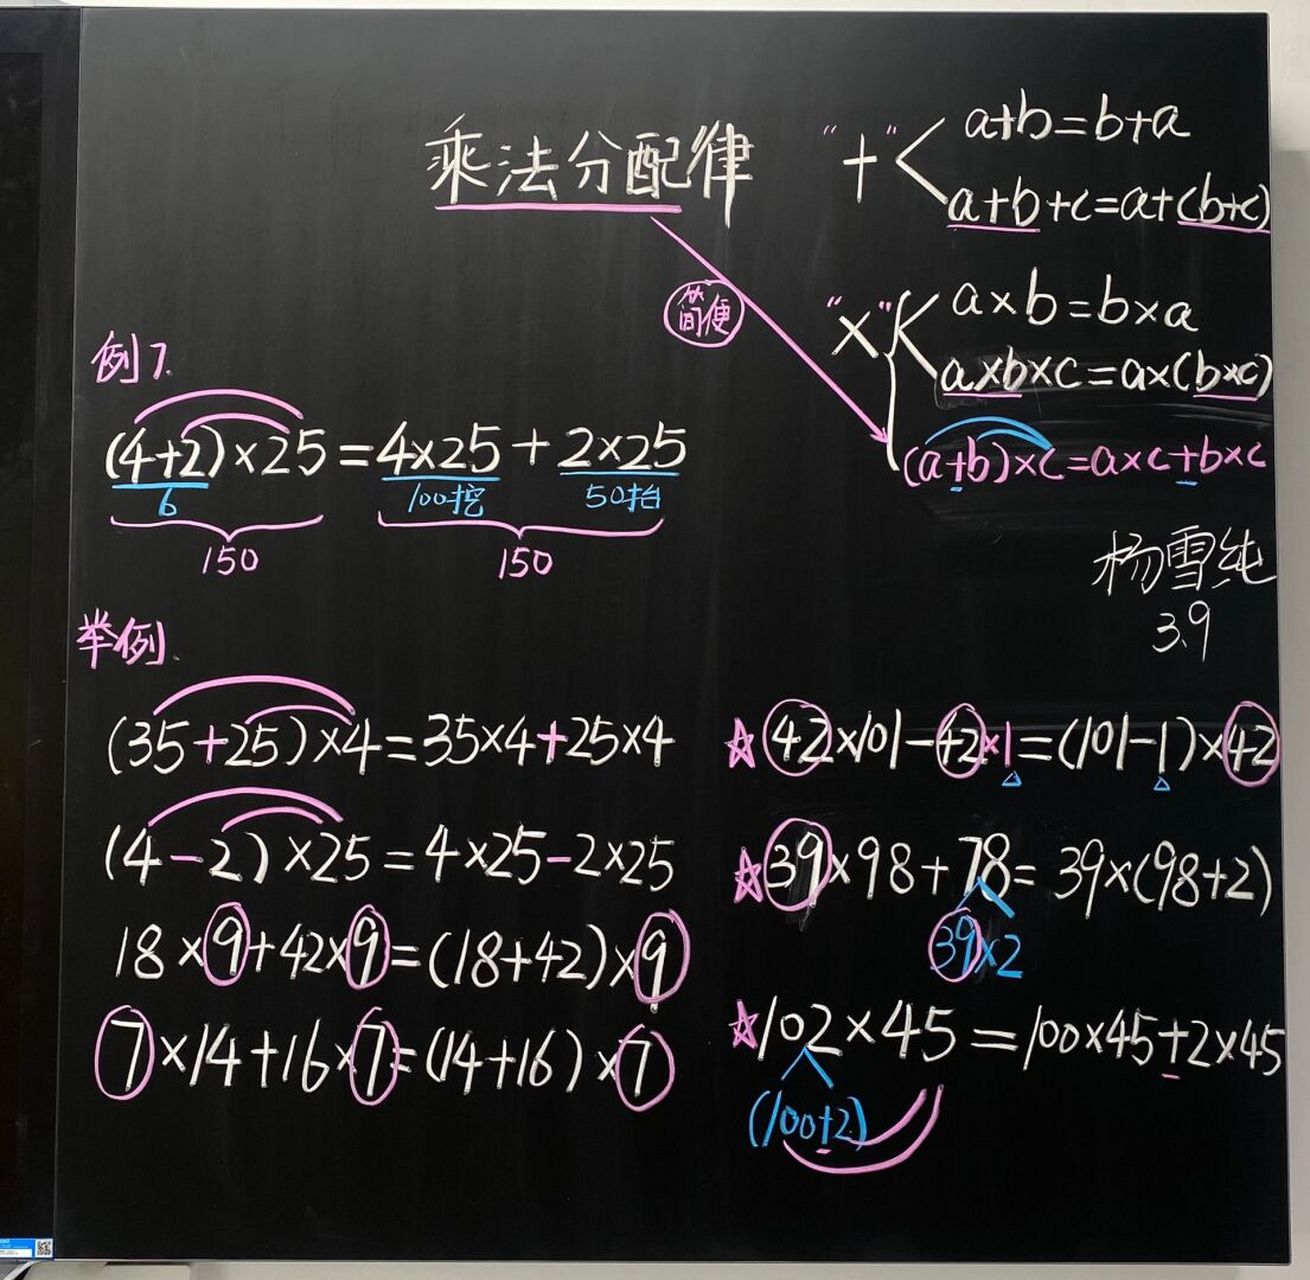 乘法分配律
"+"
a+b=b+a
a+b+c=a+(b+c)
简便
"×"
a×b=b×a
a×b×c=a×(b×c)
(a+b)×c=a×c+b×c
例7.
(4+2)×25=4×25+2×25
6 100挖 50抬
150 150
杨雪纯
3.9
举例.
(35+25)×4=35×4+25×4
(4-2)×25=4×25-2×25
18×9+42×9=(18+42)×9
7×14+16×7=(14+16)×7
☆42×101-42×1=(101-1)×42
☆39×98+78=39×(98+2)
39×2
☆102×45=100×45+2×45
(100+2)